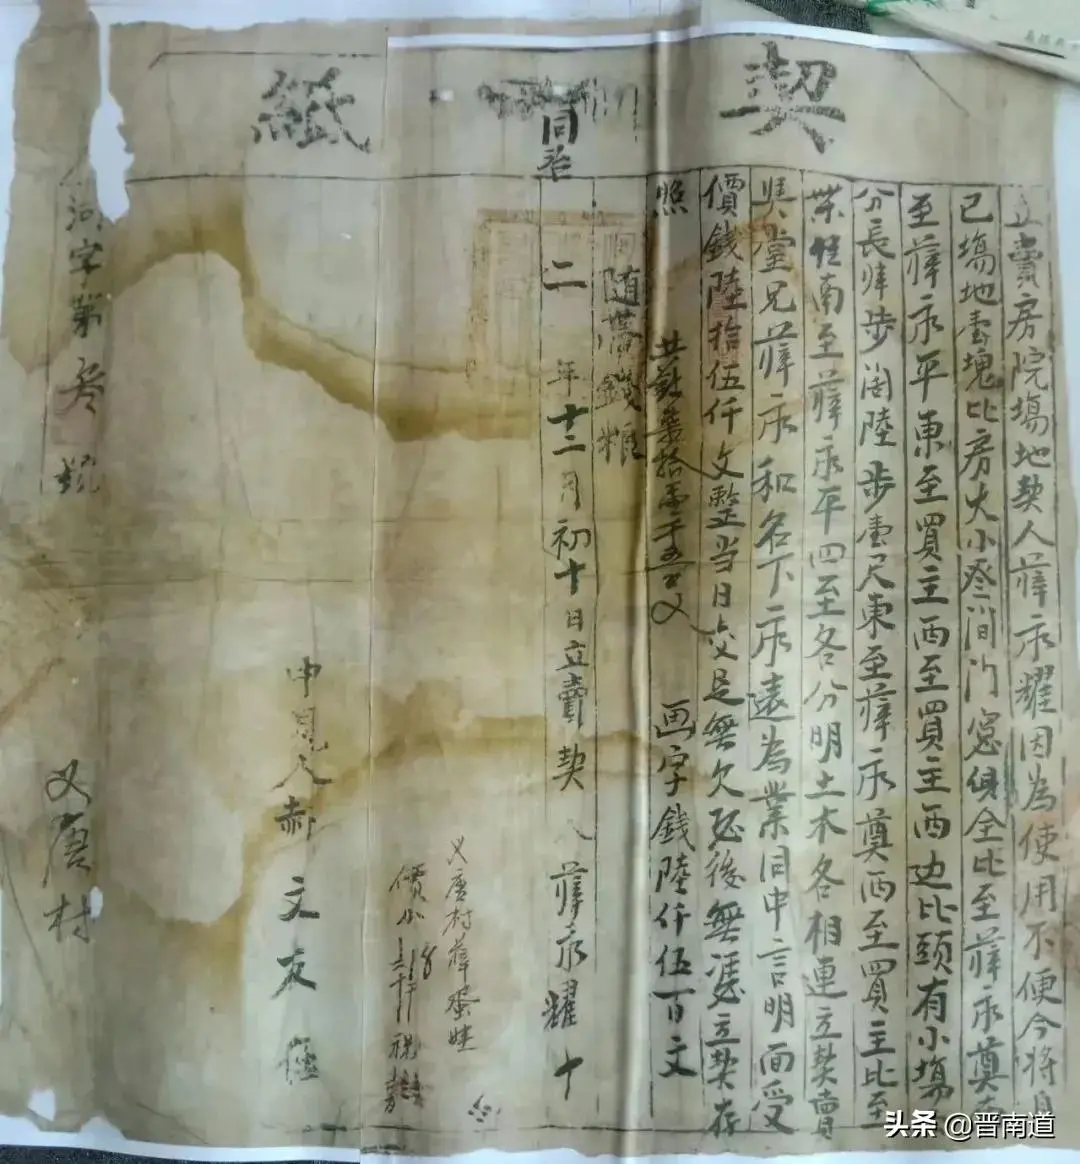 契 同治 紙
立賣房院塲地契人薛永耀因為使用不便今將自
己塲地壹塊北房大小叁间门窓俱全北至薛永奠南
至薛永平東至買主西至買主西边北頭有小塲
分長 步阔陸步壹尺東至薛永奠西至買主北至
業 南至薛永平四至各分明土木各相連立契賣
與堂兄薛永和名下永遠為業同中言明面受
價錢陸拾伍仟文整當日交足無欠恐後無凴立契存
照 共 拾壹千五百文 画字錢陸仟伍百文
随帶錢粮
二年十二月初十日立賣契人薛永耀十
义唐村薛蛋娃
價
中見人郝文友
河字第叁號 义唐村
头条 @晋南道